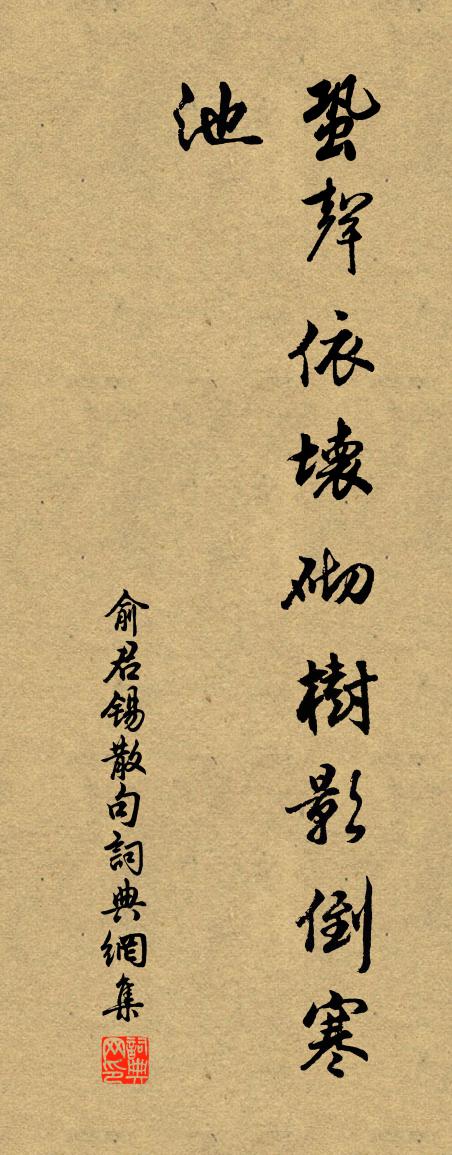 蛩聲依壞砌樹影倒寒
池
俞君錫散句詞典網集
詞典
网印